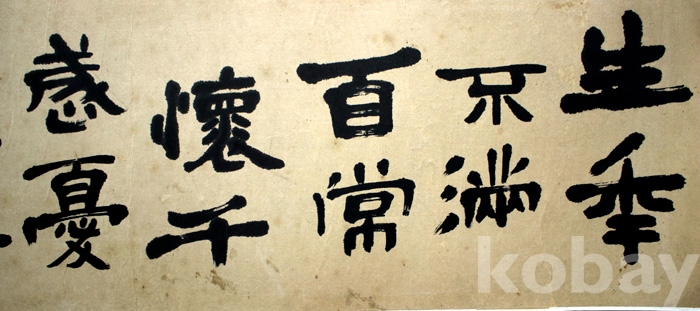 生年
不滿
百常
懷千
歲憂
kobay